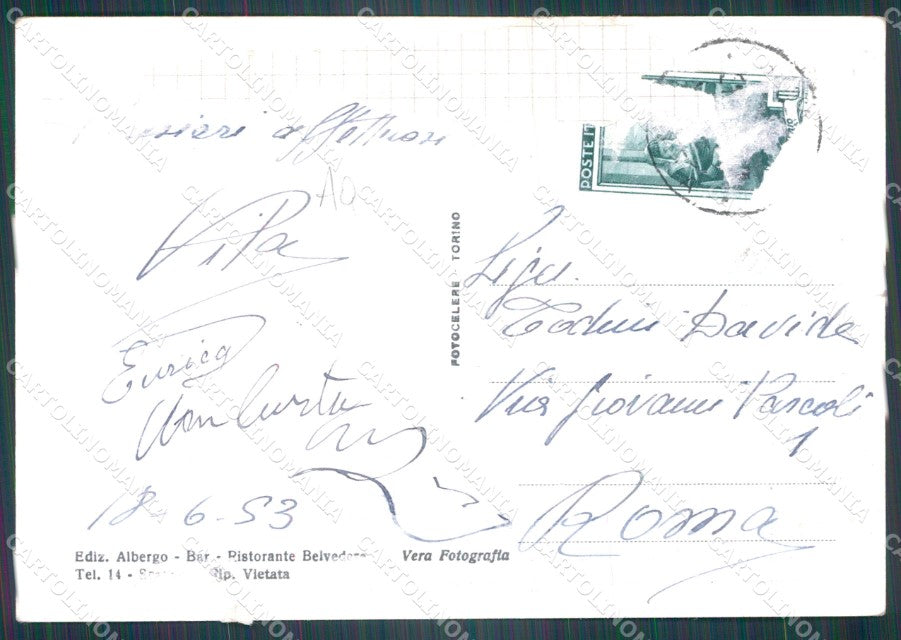 affettuosi
Vita
Enrica
Umberto
18-6-53
Ediz. Albergo - Bar - Ristorante Belvedere
Tel. 14 - Rip. Vietata
Vera Fotografia
FOTOCELERE TORINO
POSTE IT
Davide
Via Giovanni Pascoli
1
Roma
CARTOLINOMANIA